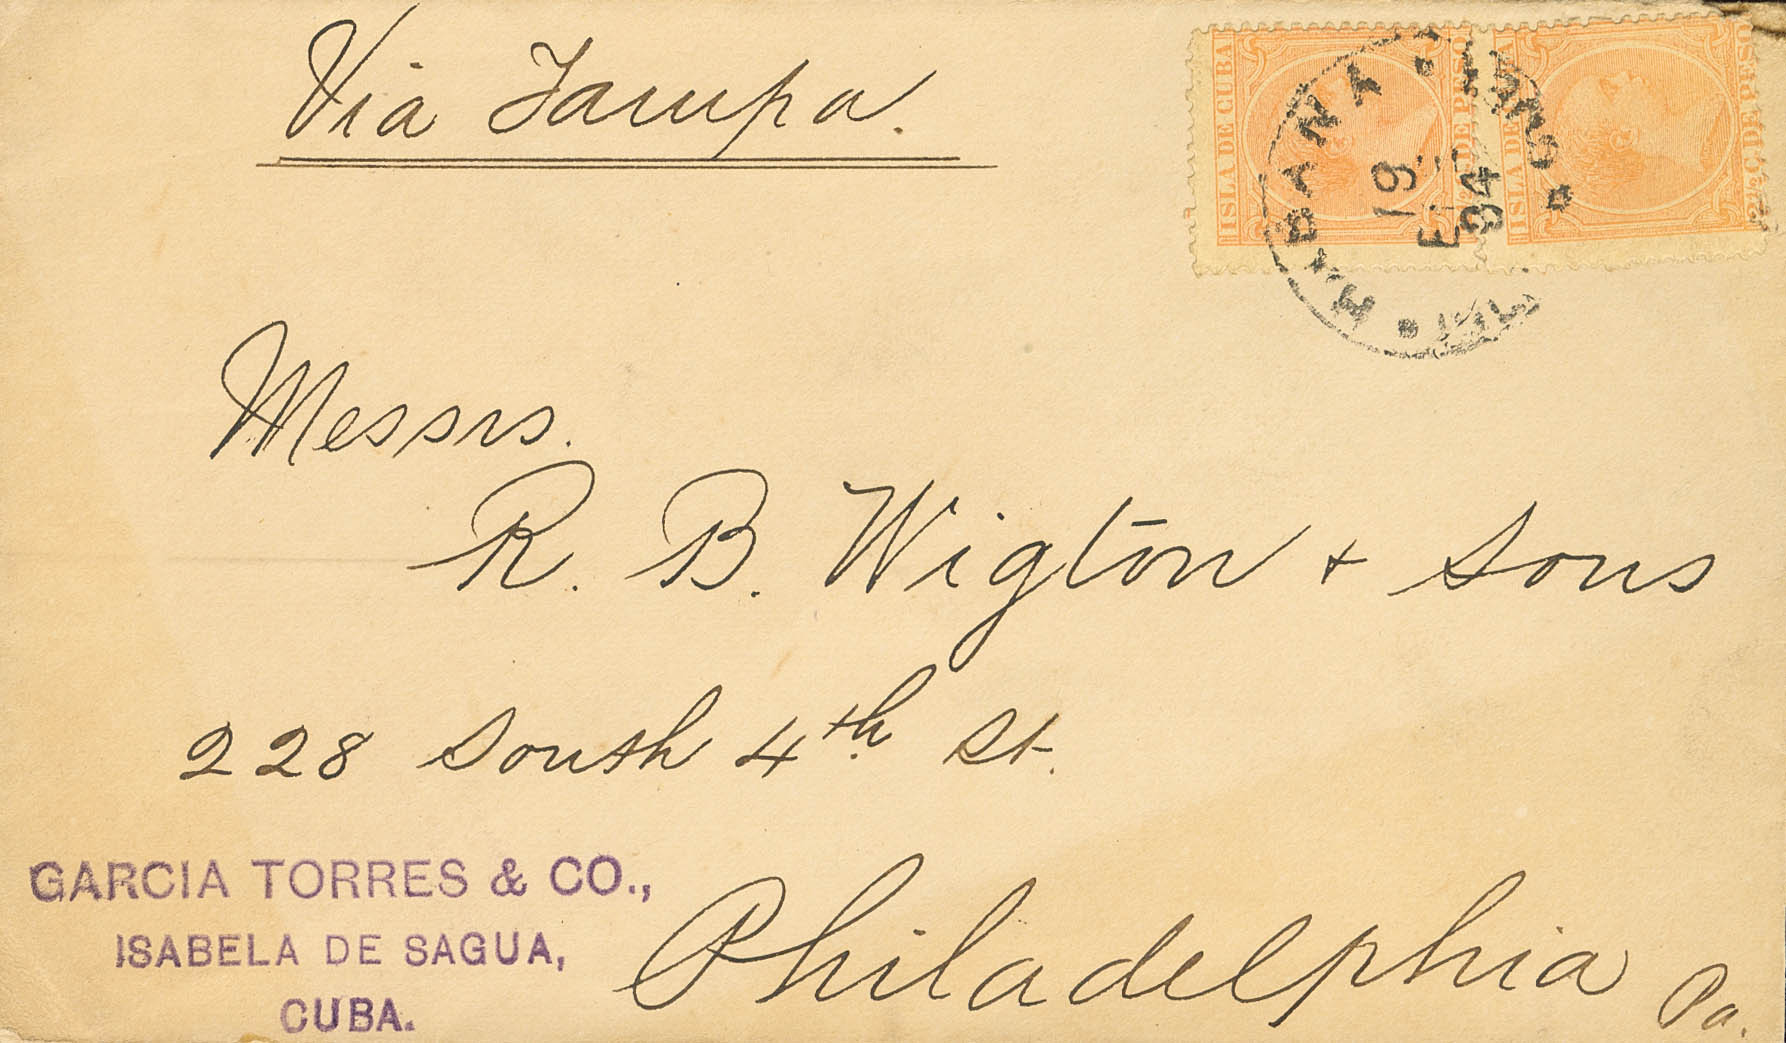 Via Tampa.
ISLA DE CUBA
DE PESO
ISLA DE
C. DE PESO
HABANA
19
94
Messrs.
R. B. Wigton + Sons
228 South 4th St.
Philadelphia Pa.
GARCIA TORRES & CO.,
ISABELA DE SAGUA,
CUBA.